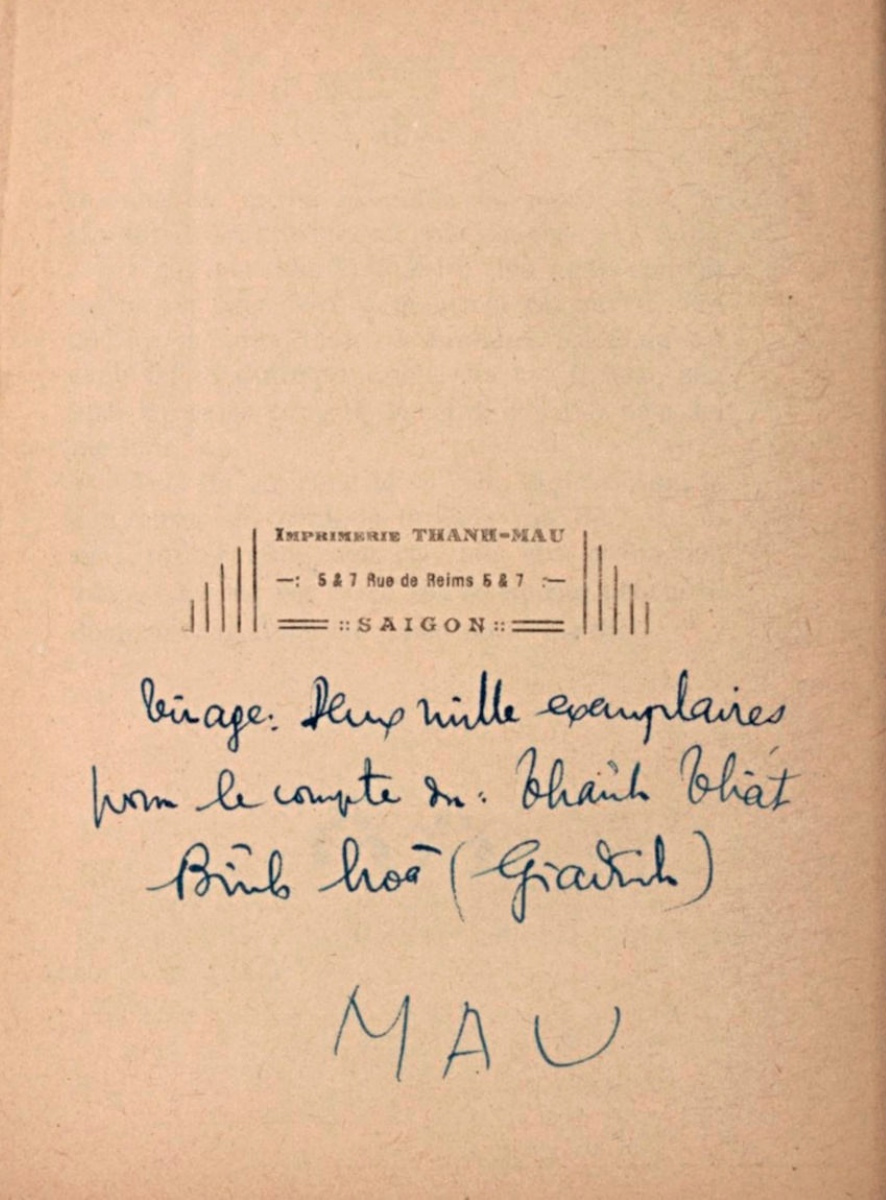 IMPRIMERIE THANH-MAU
—: 5 & 7 Rue de Reims 5 & 7 :—
:: SAIGON ::
Tirage: Deux mille exemplaires
pour le compte du: Thánh Thất
Bình hoà (Giadinh)
MAU